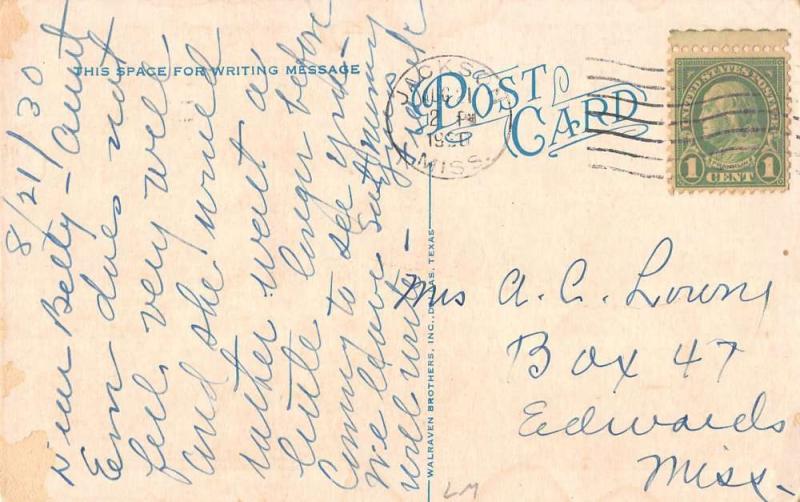 THIS SPACE FOR WRITING MESSAGE
POST CARD
JACKS
12 PM
MISS.
UNITED STATES POSTAGE
FRANKLIN
1 CENT 1
8/21/30
Dear Betty - Aunt
Em does not
feel very well
and she will
rather wait a
little longer before
coming to see you -
We leave Sat.
will write -
Mrs A. C. Lowry
Box 47
Edwards
Miss.
WALRAVEN BROTHERS, INC., DALLAS, TEXAS
LM